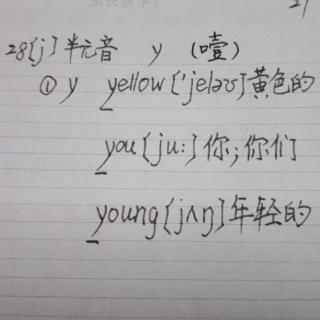 28[j]半元音 y (噎)
① y yellow ['jeləʊ]黄色的
you [ju:]你;你们
young[jʌŋ]年轻的